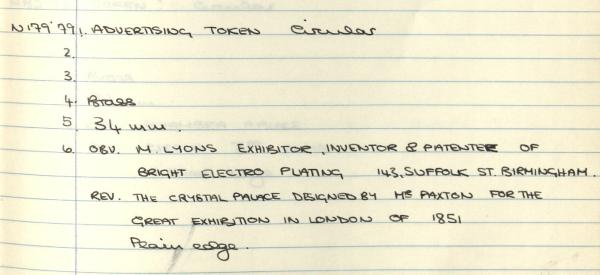 N179'79 1. ADVERTISING TOKEN Circular
2.
3.
4. Brass
5. 34 mm.
6. OBV. M. LYONS EXHIBITOR, INVENTOR & PATENTEE OF
BRIGHT ELECTRO PLATING 143, SUFFOLK ST. BIRMINGHAM.
REV. THE CRYSTAL PALACE DESIGNED BY MR PAXTON FOR THE
GREAT EXHIBITION IN LONDON OF 1851
Plain edge.